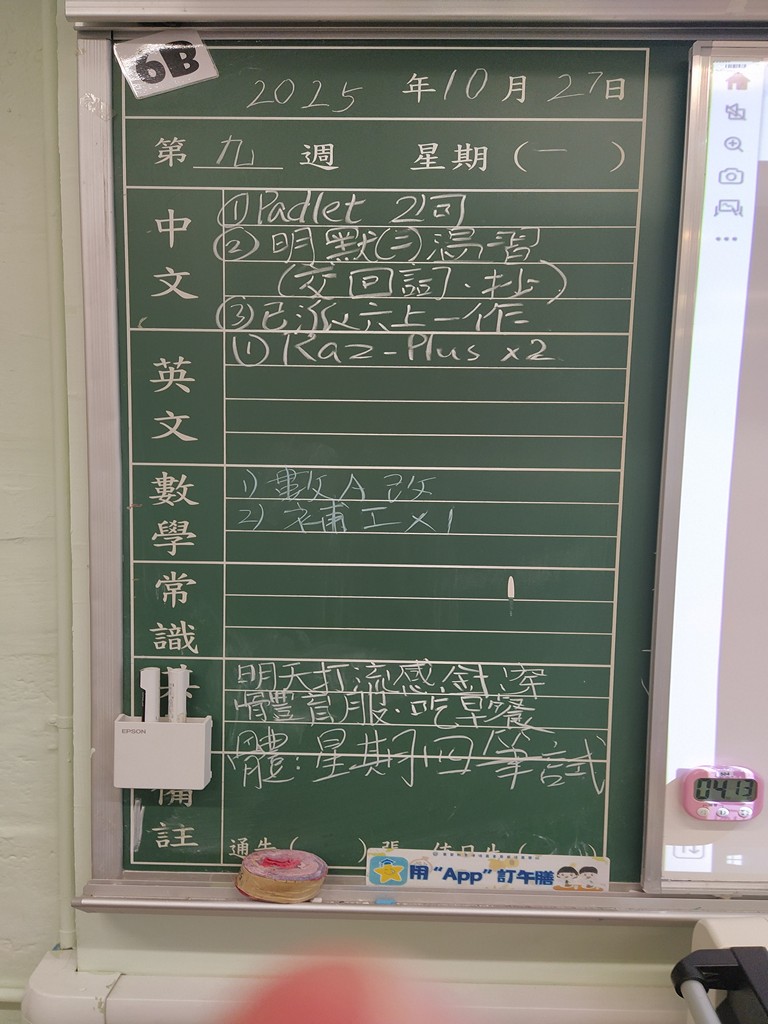 6B
2025 年 10 月 27 日
第 九 週 星期（一）
中文
①Padlet 2回
②明默(三)溫習
(交回詞.抄)
③已派六上一作
英文
①Raz-Plus x2
數學
1) 數A改
2) 補工x1
常識
明天打流感針,穿
體育服.吃早餐
體:星期四筆試
EPSON
備註
通告（ ）張 值日生（
用"App"訂午膳
04.13